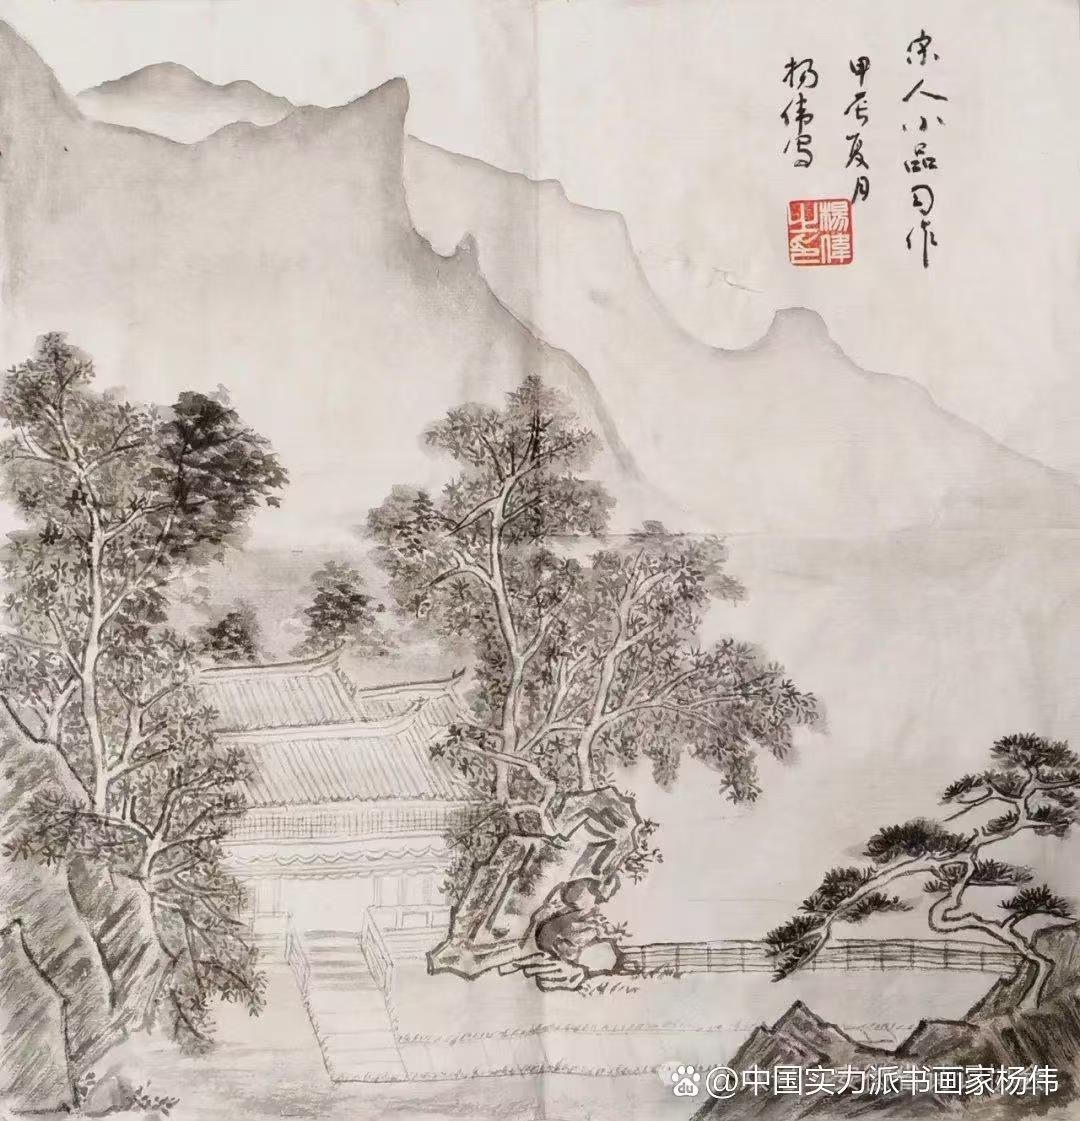 宋人小品习作
甲辰夏月
杨伟写
楊偉
之印
@中国实力派书画家杨伟